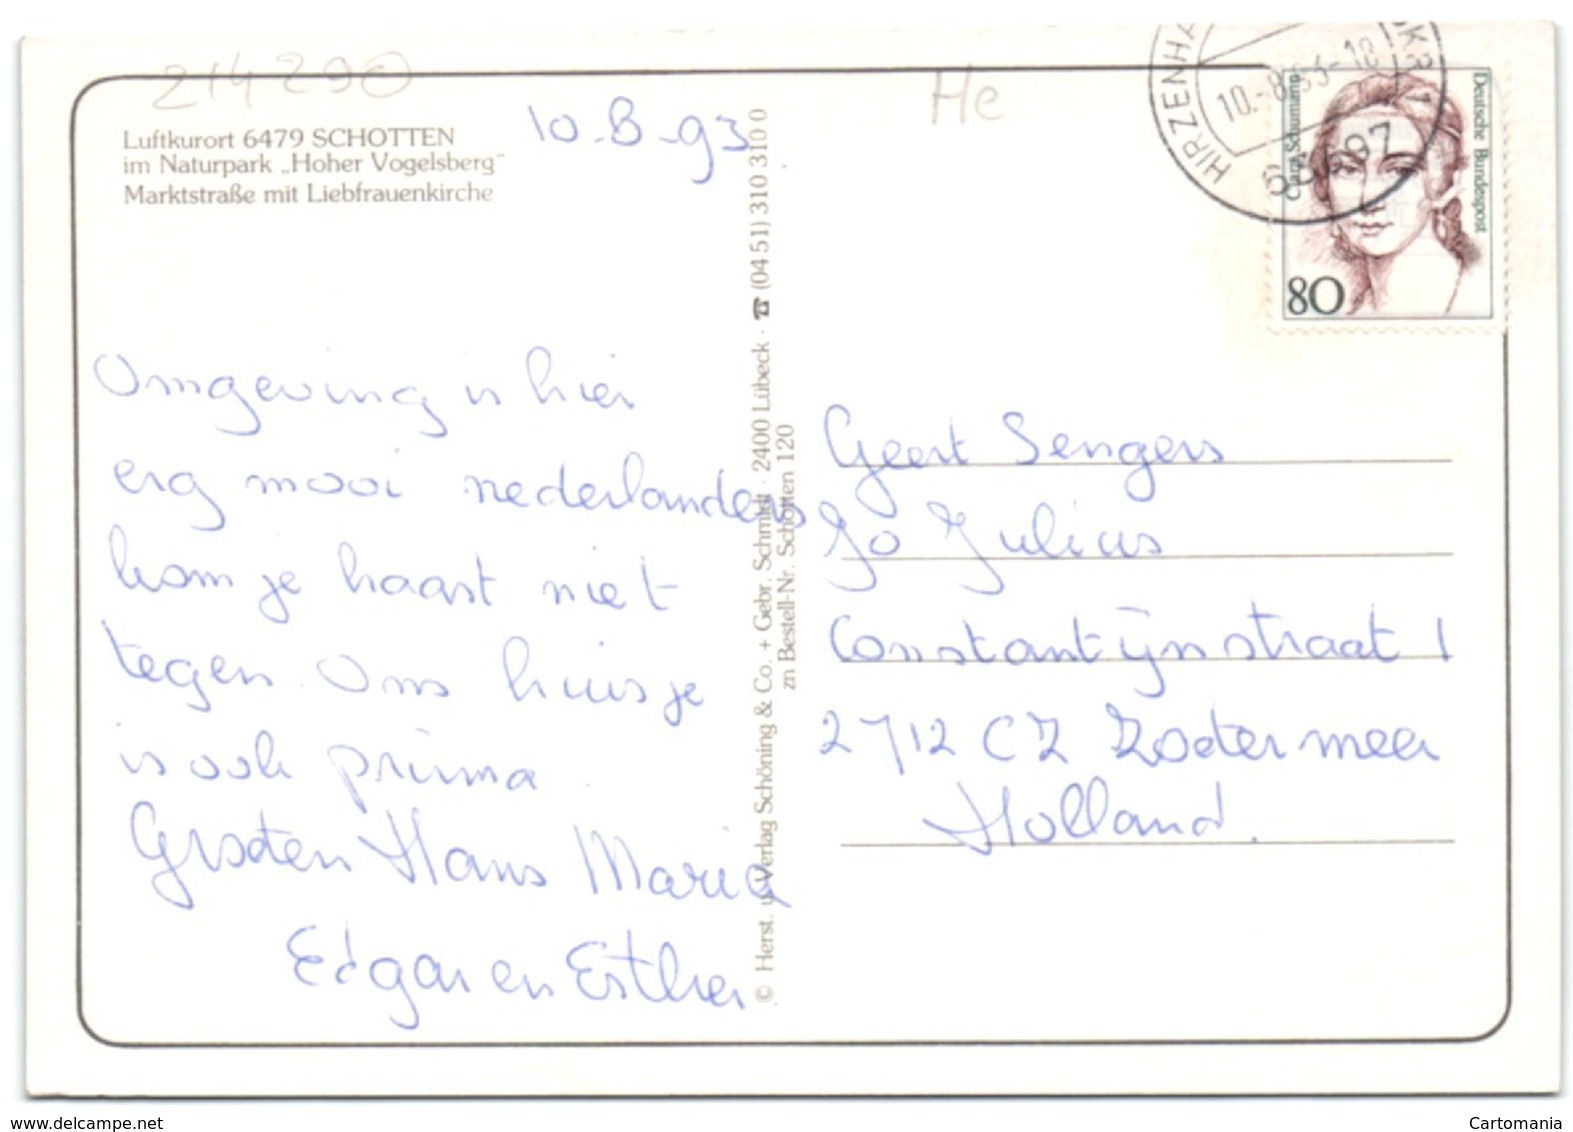 214290
He
Luftkurort 6479 SCHOTTEN
im Naturpark „Hoher Vogelsberg"
Marktstraße mit Liebfrauenkirche
10-8-93
Omgeving is hier
erg mooi nederlanders
kom je haast niet
tegen. Ons huisje
is ook prima.
Groeten Hans Maria
Edgar en Esther
© Herst. u. Verlag Schöning & Co. + Gebr. Schmidt · 2400 Lübeck · ☎ (04 51) 310 310 0
zn Bestell-Nr. Schotten 120
HIRZENHA
10.-8.93-18
63697
Deutsche Bundespost
Clara Schumann
80
Geert Sengers
Jo Julius
Constantijnstraat 1
2712 CZ Zoetermeer
Holland.
www.delcampe.net
Cartomania